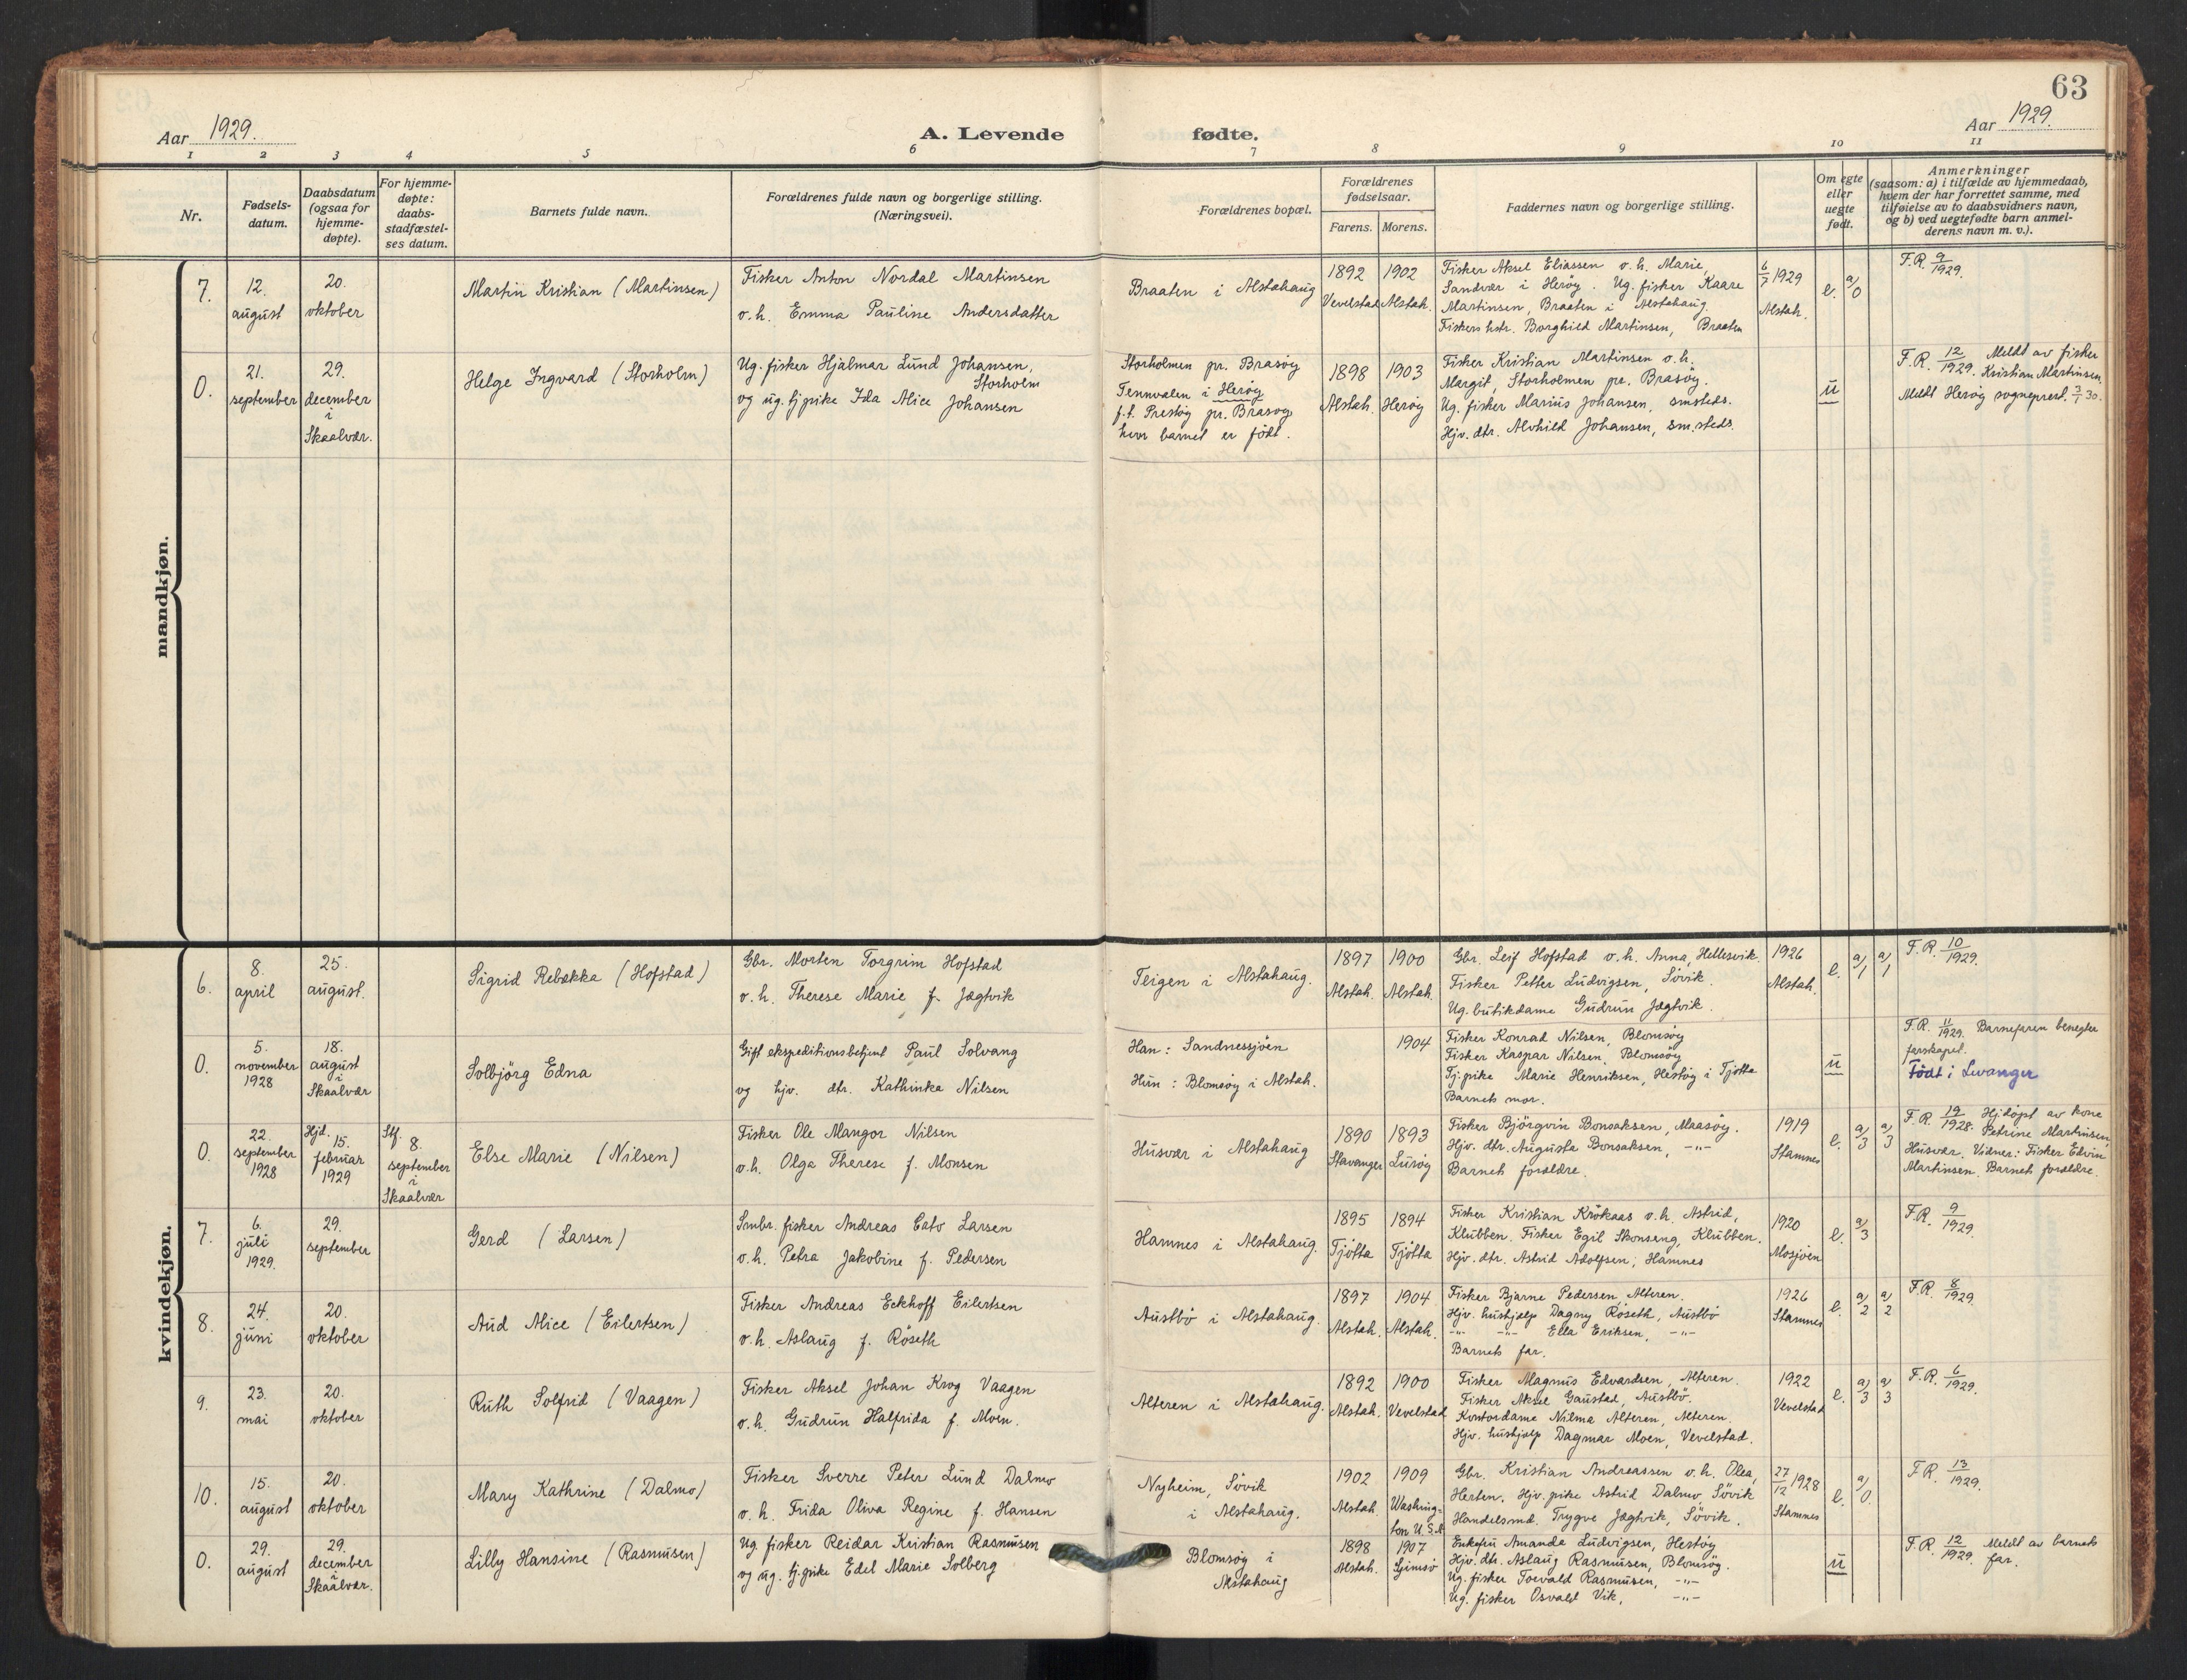 63
Aar 1929.
A. Levende fødte.
Aar 1929.
1 2 3 4 5 6 7 8 9 10 11
Nr.
Fødsels-
datum.
Daabsdatum
(ogsaa for
hjemme-
døpte).
For hjemme-
døpte:
daabs-
stadfæstel-
ses datum.
Barnets fulde navn.
Forældrenes fulde navn og borgerlige stilling.
(Næringsvei).
Forældrenes bopæl.
Forældrenes
fødselsaar.
Farens. Morens.
Faddernes navn og borgerlige stilling.
Om egte
eller
uegte
født.
Anmerkninger
(saasom: a) i tilfælde av hjemmedaab,
hvem der har forrettet samme, med
tilføielse av to daabsvidners navn,
og b) ved uegtefødte barn anmel-
derens navn m. v.).
mandkjøn.
7.
12.
august
20.
oktober
Martin Kristian (Martinsen)
Fisker Anton Nordal Martinsen
o.h. Emma Pauline Andersdatter
Braaten i Alstahaug
1892
Vevelstad
1902
Alstah.
Fisker Aksel Eliassen o.h. Marie,
Sandvær i Herøy. Ug. fisker Kaare
Martinsen, Braaten i Alstahaug.
Fiskers hstr. Borghild Martinsen, Braaten
6/7 1929
Alstah.
e.
a/0
F.R. 9/1929.
0.
21.
september
29.
december
i
Skaalvær.
Helge Ingvard (Storholm)
Ug. fisker Hjalmar Lund Johansen,
Storholm
og ug. tj.pike Ida Alice Johansen
Storholmen pr. Brasøy
Tennvalen i Herøy
f.t. Prestøy pr. Brasøy
hvor barnet er født.
1898
Alstah.
1903
Herøy
Fisker Kristian Martinsen o.h.
Margit, Storholmen pr. Brasøy.
Ug. fisker Marius Johansen, smsteds.
Hjv. dtr. Alvhild Johansen, sm.steds.
u
F.R. 12/1929. Meldt av fisker
Kristian Martinsen.
Meldt Herøy sogneprest. 3/1 30.
kvindekjøn.
6.
8.
april
25.
august.
Sigrid Rebækka (Hofstad)
Gbr. Morten Torgrim Hofstad
o.h. Therese Marie f. Jægtvik
Teigen i Alstahaug.
1897
Alstah.
1900
Alstah.
Gbr. Leif Hofstad o.h. Anna, Hellesvik.
Fisker Petter Ludvigsen, Søvik.
Ug. butikdame Gudrun Jægtvik.
1926
Alstah.
e.
a/1 a/1
F.R. 10/1929.
0.
5.
november
1928
18.
august
i
Skaalvær
Solbjörg Edna
Gift ekspeditionsbetjent Paul Solvang
og hjv. dtr. Kathinka Nilsen
Han: Sandnessjøen
Hun: Blomsøy i Alstah.
1904
Fisker Konrad Nilsen, Blomsøy
Fisker Kaspar Nilsen, Blomsøy
Tj.pike Marie Henriksen, Hestøy i Tjøtta
Barnets mor.
u
F.R. 11/1929. Barnefaren benegter
farskapet.
Født i Levanger
0.
22.
september
1928
Hjd.
15.
februar
1929
Stf.
8.
september
i
Skaalvær
Else Marie (Nilsen)
Fisker Ole Mangor Nilsen
o.h. Olga Therese f. Monsen
Husvær i Alstahaug
1890
Stavanger
1893
Lurøy
Fisker Björgvin Bonsaksen, Maasøy.
Hjv. dtr. Augusta Bonsaksen, -"-
Barnets forældre.
1919
Stamnes
e.
a/3 a/3
F.R. 19/1928. Hj.døpt av kone
Petrine Martinsen,
Husvær. Vidner: Fisker Edvin
Martinsen. Barnets forældre.
7.
6.
juli
1929.
29.
september
Gerd (Larsen)
Smbr. fisker Andreas Cato Larsen
o.h. Petra Jakobine f. Pedersen
Hamnes i Alstahaug.
1895
Tjøtta
1894
Tjøtta
Fisker Kristian Krökaas o.h. Astrid,
Klubben. Fisker Egil Skonseng, Klubben.
Hjv. dtr. Astrid Adolfsen, Hamnes
1920
Mosjøen
e.
a/3
F.R. 9/1929.
8.
24.
juni
20.
oktober
Aud Alice (Eilertsen)
Fisker Andreas Eckhoff Eilertsen
o.h. Aslaug f. Röseth
Austbø i Alstahaug.
1897
Alstah.
1904
Alstah.
Fisker Bjarne Pedersen Alteren.
Hjv. hushjelp Dagny Röseth, Austbø
-"- -"- Ella Eriksen, -"-
Barnets far.
1926
Stamnes
e.
a/2 a/2
F.R. 8/1929.
9.
23.
mai
20.
oktober
Ruth Solfrid (Vaagen)
Fisker Aksel Johan Krog Vaagen
o.h. Gudrun Halfrida f. Moen.
Alteren i Alstahaug.
1892
Alstah.
1900
Vevelstad
Fisker Magnus Edvardsen, Alteren.
Fisker Aksel Gaustad, Austbö.
Kontordame Nilma Alteren, Alteren.
Hjv. hushjelp Dagmar Moen, Vevelstad.
1922
Vevelstad
e.
a/3 a/3
F.R. 6/1929.
10.
15.
august
20.
oktober
Mary Kathrine (Dalmo)
Fisker Sverre Peter Lund Dalmo
o.h. Frida Oliva Regine f. Hansen
Nyheim, Søvik
i Alstahaug.
1902
Alstah.
1909
Washing-
ton U.S.A.
Gbr. Kristian Andreassen o.h. Olea,
Herten. Hjv. pike Astrid Dalmo, Søvik
Handelsmd. Trygve Jægtvik, Søvik.
27/12 1928
Stamnes
e.
a/0.
F.R. 13/1929.
0.
29.
august
29.
december
i
Skaalvær.
Lilly Hansine (Rasmusen)
Ug. fisker Reidar Kristian Rasmusen
og ug. tj.pike Edel Marie Solberg
Blomsøy i
Alstahaug
1898
Alstah.
1907
Gimsø
Enkefru Amanda Ludvigsen, Hestøy
Hjv. dtr. Aslaug Rasmusen, Blomsøy.
Ug. fisker Torvald Rasmusen, -"-
Ug. fisker Osvald Vik, -"-
u
F.R. 12/1929. Meldt av barnets
far.